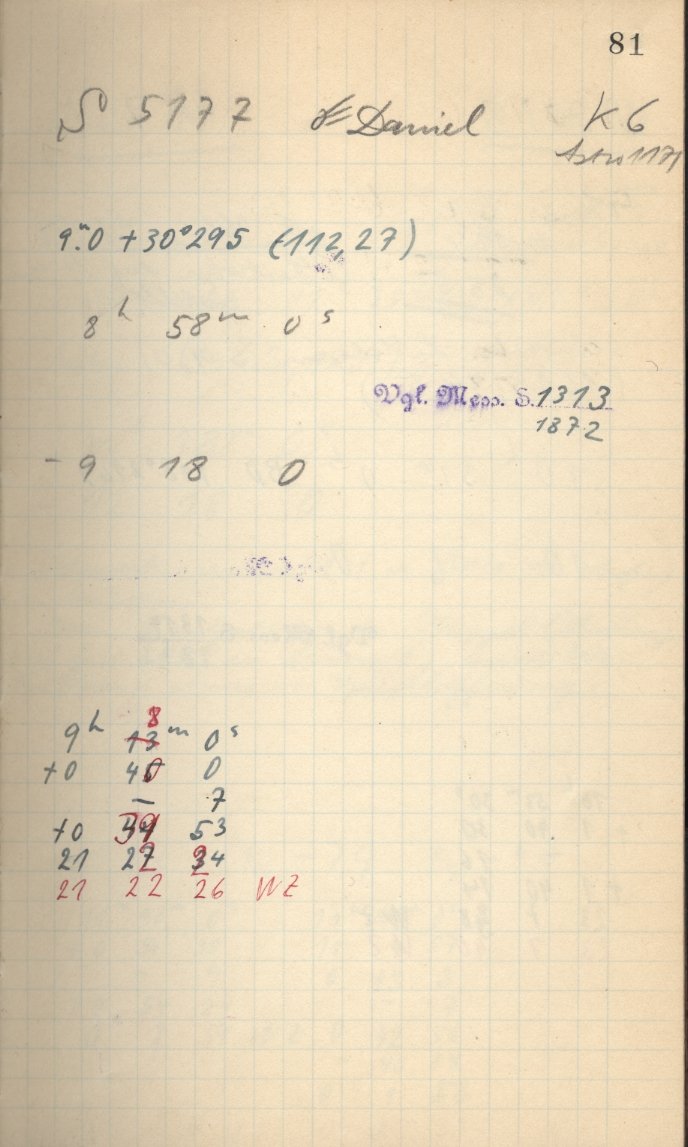 81
S 5177 Daniel K6
Astro 1171
9.ᵐ0 +30°295 (-112,27)
8ʰ 58ᵐ 0ˢ
Vgl. Mess. S. 1313
1872
- 9 18 0
8
9ʰ 13ᵐ 0ˢ
+0 40 0
- 7
+0 39 53
21 22 24
21 22 26 WZ